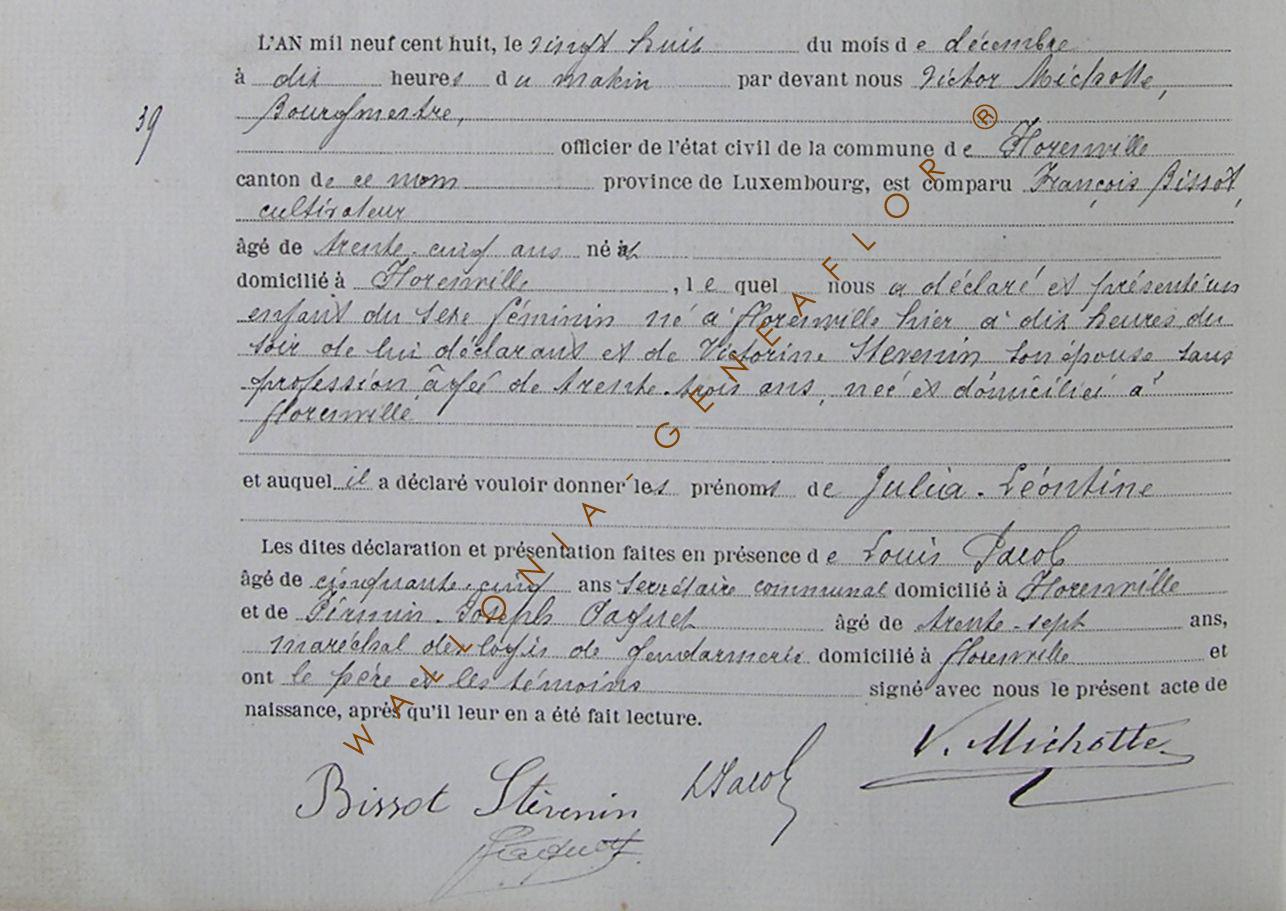 L'AN mil neuf cent huit, le vingt huit du mois de décembre
à dix heures du matin par devant nous Victor Michotte,
39
Bourgmestre,
officier de l'état civil de la commune de Florenville
canton de ce nom province de Luxembourg, est comparu François Bissot,
cultivateur
âgé de trente-cinq ans né à
domicilié à Florenville, lequel nous a déclaré et présenté un
enfant du sexe féminin né à florenville hier à dix heures du
soir de lui déclarant et de Victorine Stevenin son épouse sans
profession âgée de trente-trois ans, née et domiciliée à
florenville
et auquel il a déclaré vouloir donner les prénoms de Julia-Léontine
Les dites déclaration et présentation faites en présence de Louis Jacob
âgé de cinquante-cinq ans secrétaire communal domicilié à Florenville
et de Firmin-Joseph Jaquet âgé de trente-sept ans,
maréchal des logis de gendarmerie domicilié à florenville et
ont le père et les témoins signé avec nous le présent acte de
naissance, après qu'il leur en a été fait lecture.
V. Michotte
Bissot Stévenin LJacob
Jaquet
WALLONIA GENEAFLOR ®